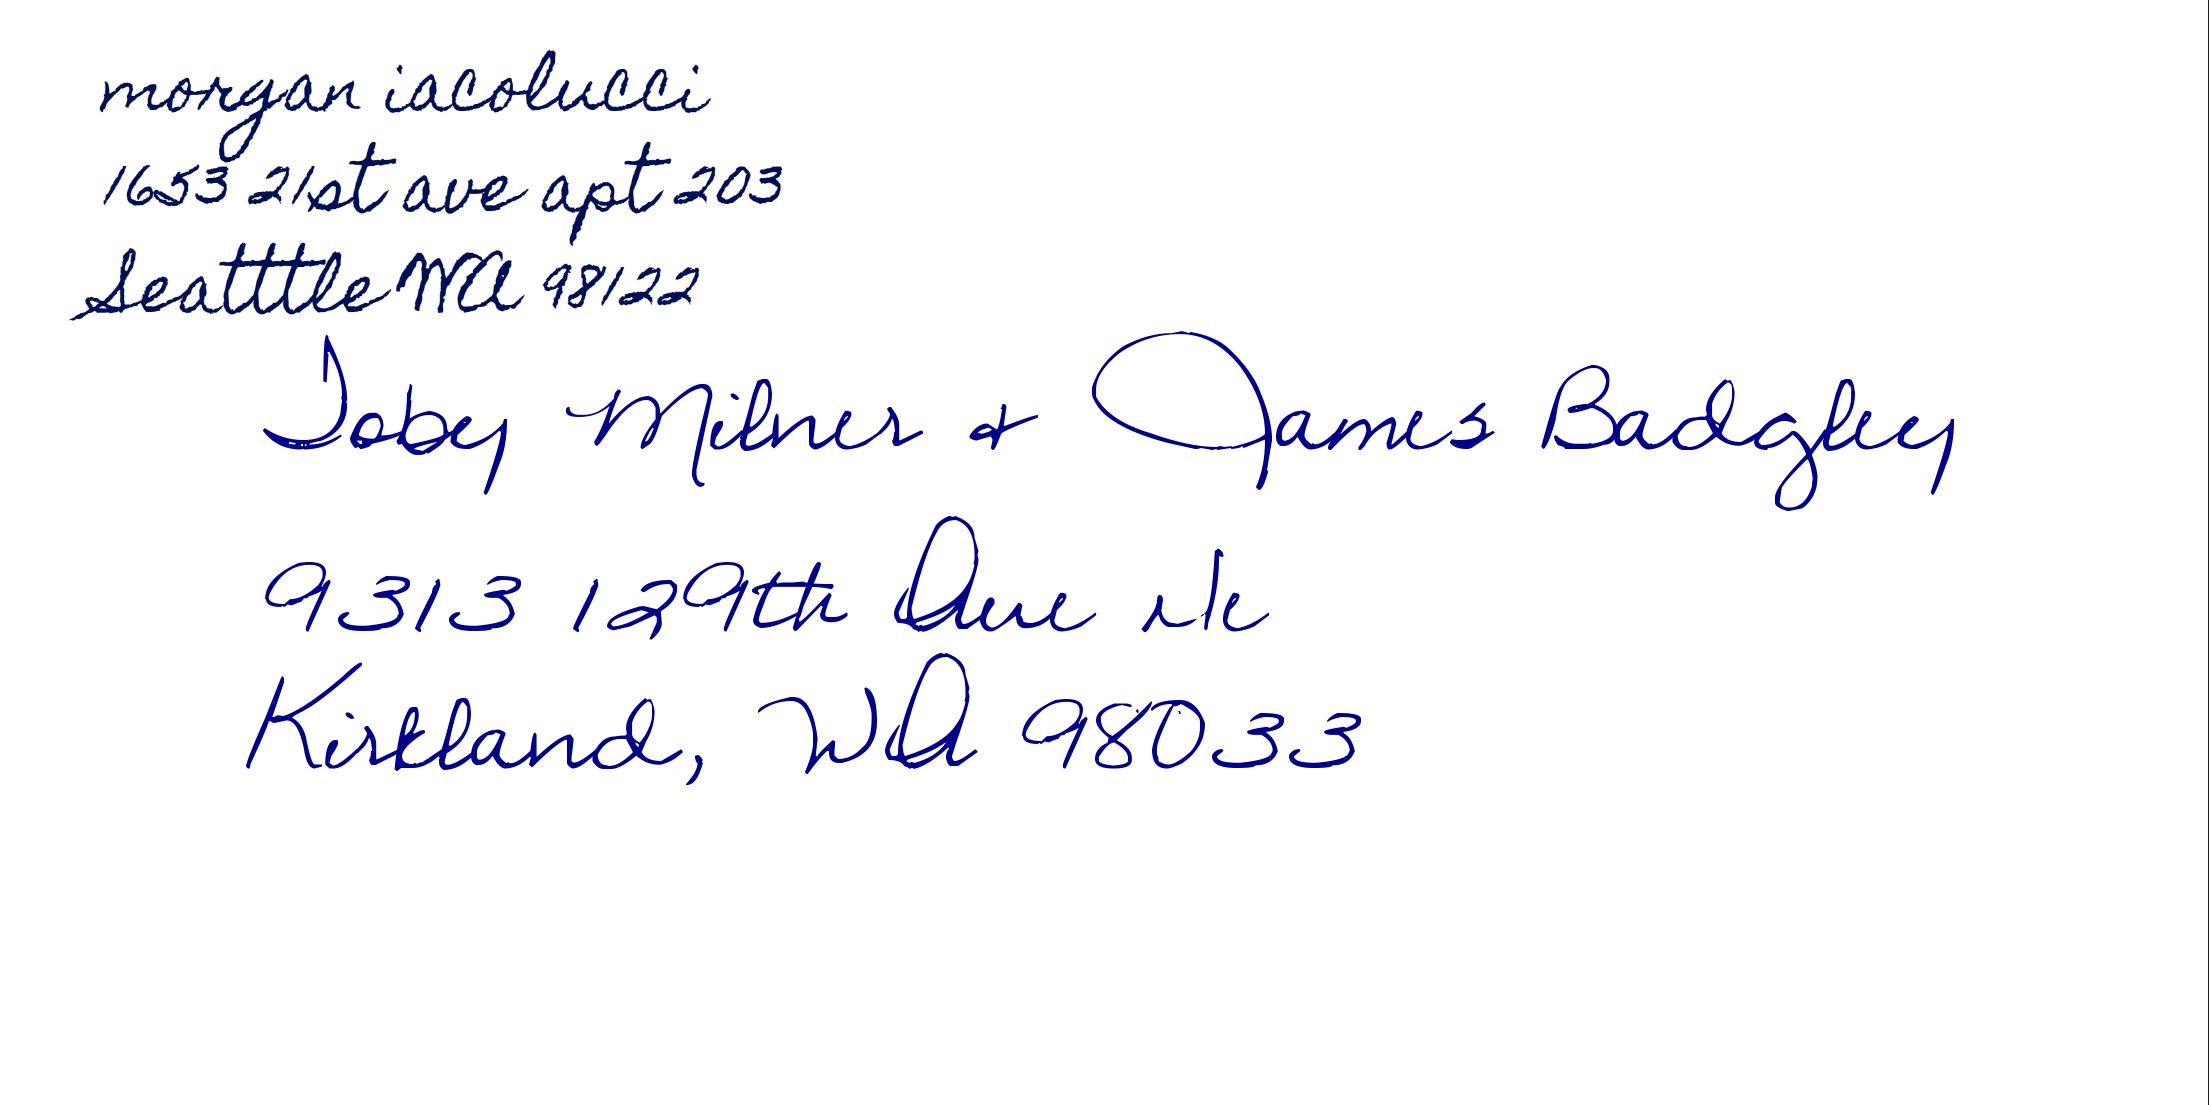 morgan iacolucci
1653 21st ave apt 203
Seatttle WA 98122
Toby Milner & James Badgley
9313 129th Ave Ne
Kirkland, WA 98033